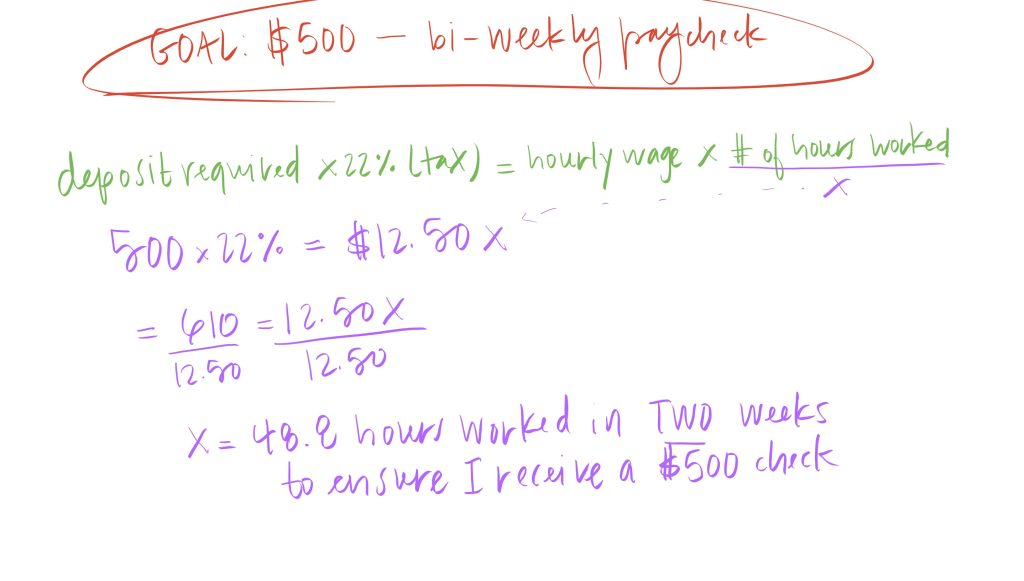 GOAL: $500 — bi-weekly paycheck
deposit required x 22% (tax) = hourly wage x # of hours worked
x
500 x 22% = $12.50 x
= 610 = 12.50 x
12.50 12.50
x = 48.8 hours worked in TWO weeks
to ensure I receive a $500 check